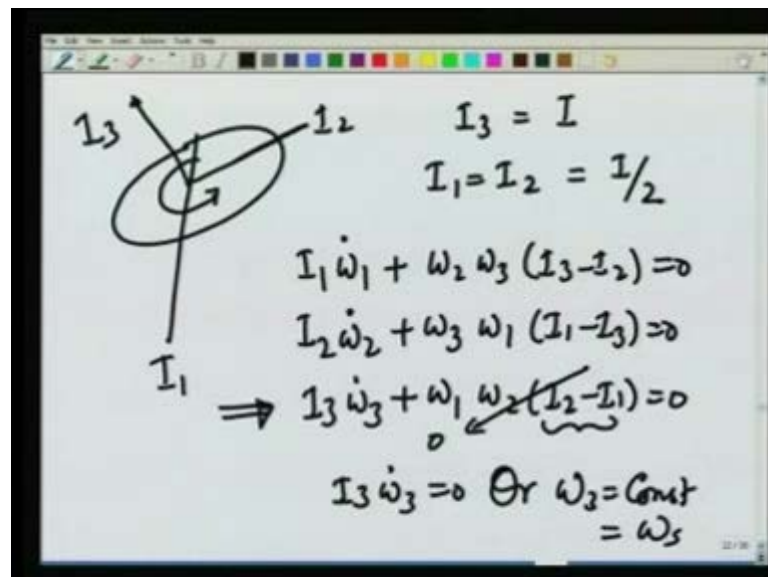 I3
I2
I1
I3 = I
I1 = I2 = I/2
I1 ω̇1 + ω2 ω3 (I3-I2) = 0
I2 ω̇2 + ω3 ω1 (I1-I3) = 0
⇒ I3 ω̇3 + ω1 ω2 (I2-I1) = 0
0
I3 ω̇3 = 0 Or ω3 = Const
= ωs